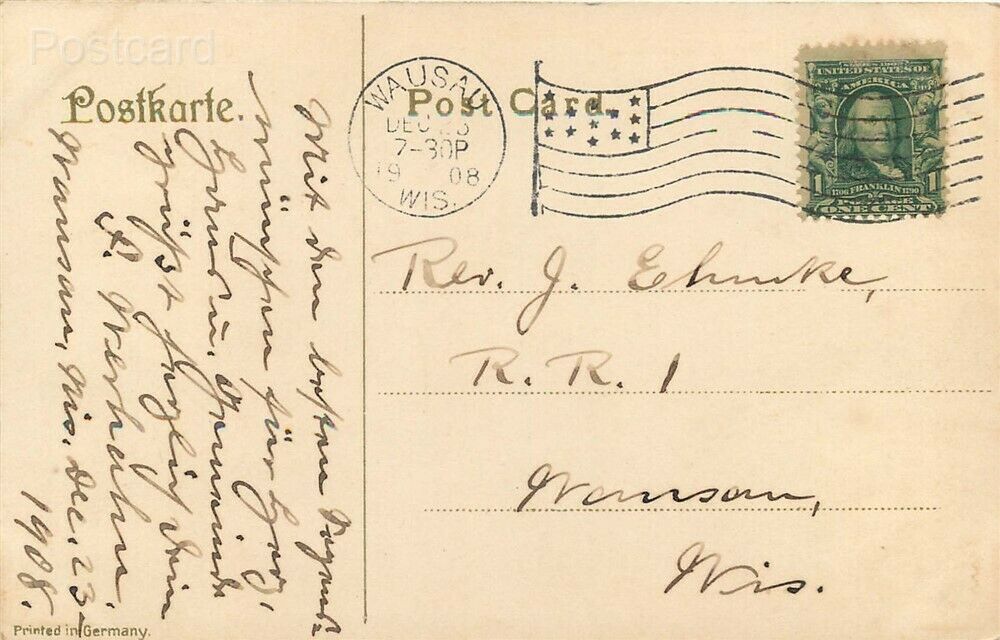 Postcard
Postkarte.
Post Card.
WAUSAU
DEC 23
7-30P
1908
WIS.
UNITED STATES OF
AMERICA
1 1706 FRANKLIN 1790 1
POSTAGE
ONE CENT
Rev. J. Ehmke,
R. R. 1
Wausau,
Wis.
Mit den besten Segens-
wünschen für Haus,
Herz u. Gemeinde
grüßt herzlich Dein
Wausau, Wis. Dec. 23-
1908.
Printed in Germany.